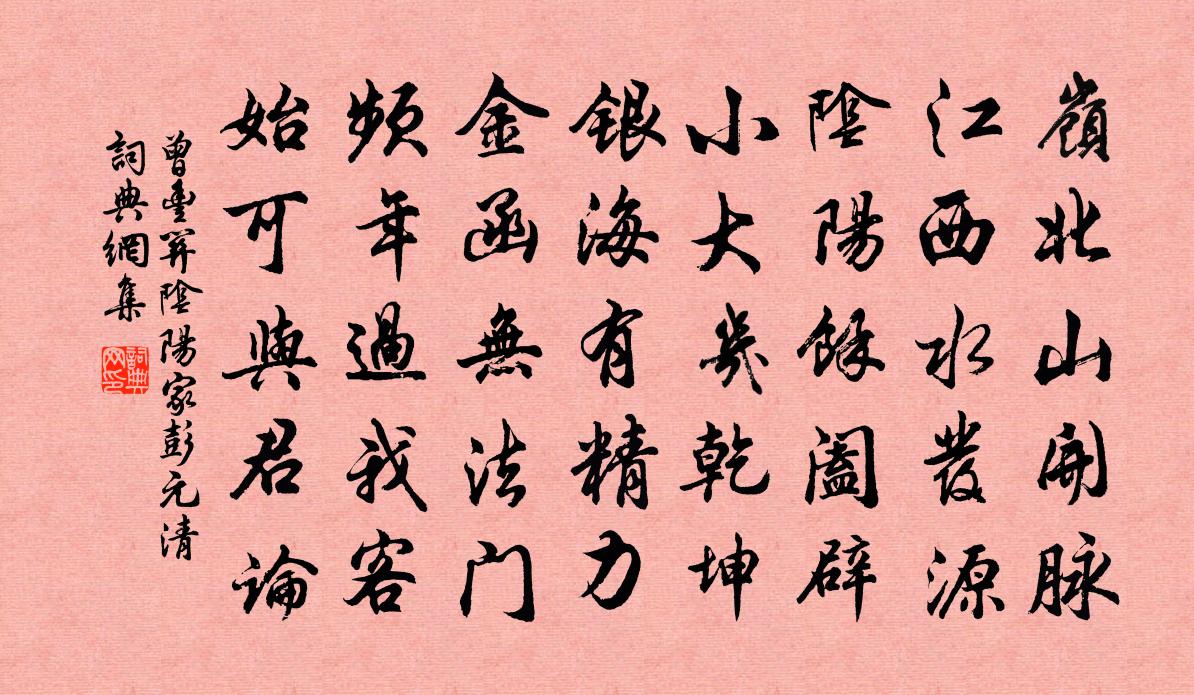 嶺北山開脉
江西水發源
陰陽餘闔辟
小大幾乾坤
銀海有精力
金函無法門
頻年過我客
始可與君論
曾豐陰陽家彭元清
詞典網集
詞典
网印